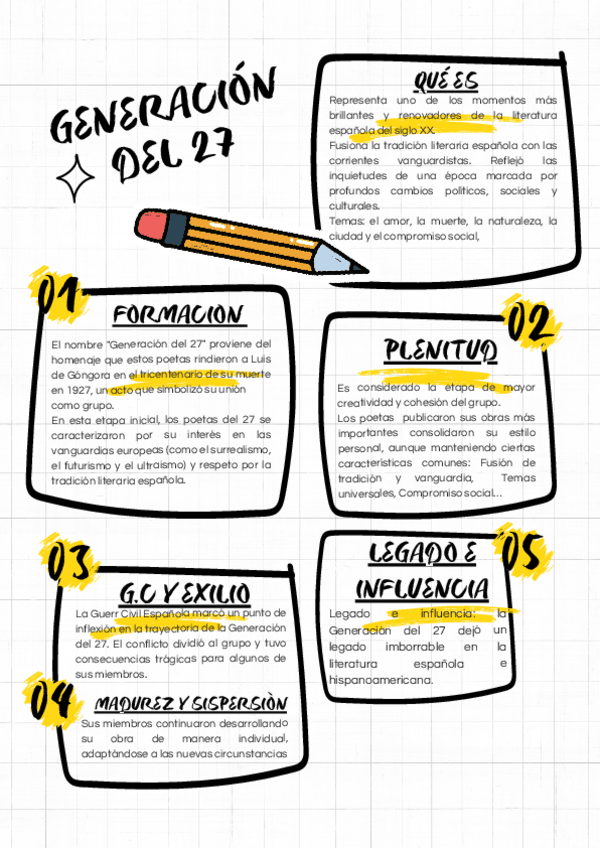 GENERACIÓN
DEL 27
QUÉ ES
Representa uno de los momentos más
brillantes y renovadores de la literatura
española del siglo XX.
Fusiona la tradición literaria española con las
corrientes vanguardistas. Reflejó las
inquietudes de una época marcada por
profundos cambios políticos, sociales y
culturales.
Temas: el amor, la muerte, la naturaleza, la
ciudad y el compromiso social,
01
FORMACION
El nombre "Generación del 27" proviene del
homenaje que estos poetas rindieron a Luis
de Góngora en el tricentenario de su muerte
en 1927, un acto que simbolizó su unión
como grupo.
En esta etapa inicial, los poetas del 27 se
caracterizaron por su interés en las
vanguardias europeas (como el surrealismo,
el futurismo y el ultraísmo) y respeto por la
tradición literaria española.
02
PLENITUD
Es considerado la etapa de mayor
creatividad y cohesión del grupo.
Los poetas publicaron sus obras más
importantes consolidaron su estilo
personal, aunque manteniendo ciertas
características comunes: Fusión de
tradición y vanguardia, Temas
universales, Compromiso social...
03
G.C Y EXILIO
La Guerr Civil Española marcó un punto de
inflexión en la trayectoria de la Generación
del 27. El conflicto dividió al grupo y tuvo
consecuencias trágicas para algunos de
sus miembros.
04
MADUREZ Y DISPERSIÒN
Sus miembros continuaron desarrollando
su obra de manera individual,
adaptándose a las nuevas circunstancias
05
LEGADO E
INFLUENCIA
Legado e influencia: la
Generación del 27 dejó un
legado imborrable en la
literatura española e
hispanoamericana.